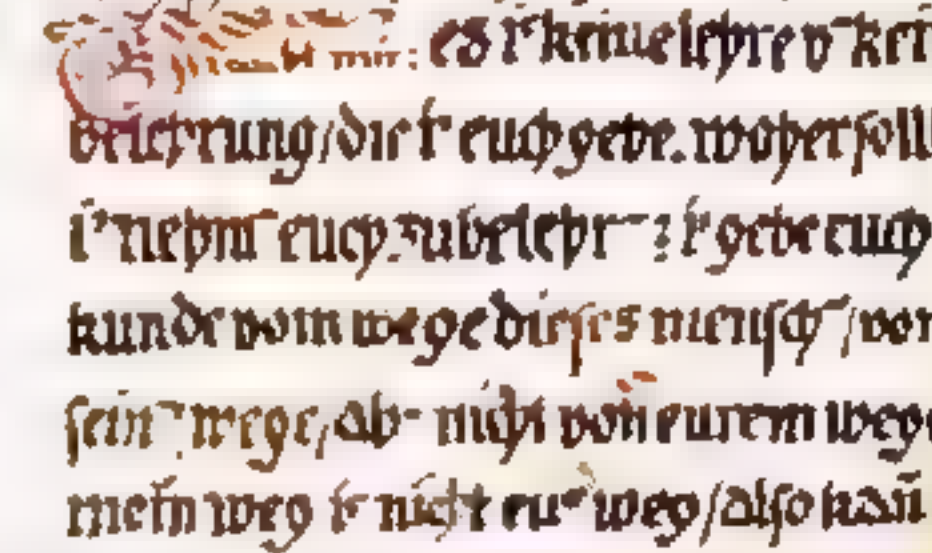 Glaubt mir: es ist keine lehre v̄ kei
belehrung/die i͂ euch gebe. woher soll
i͂ nehm̄ euch zu belehr̄? i͂ gebe euch
kunde vom wege dieses mensch̄/von
sein̄ wege/ab̄ nicht von eurem wege
mein weg is nicht eu͂ weg/also kañ